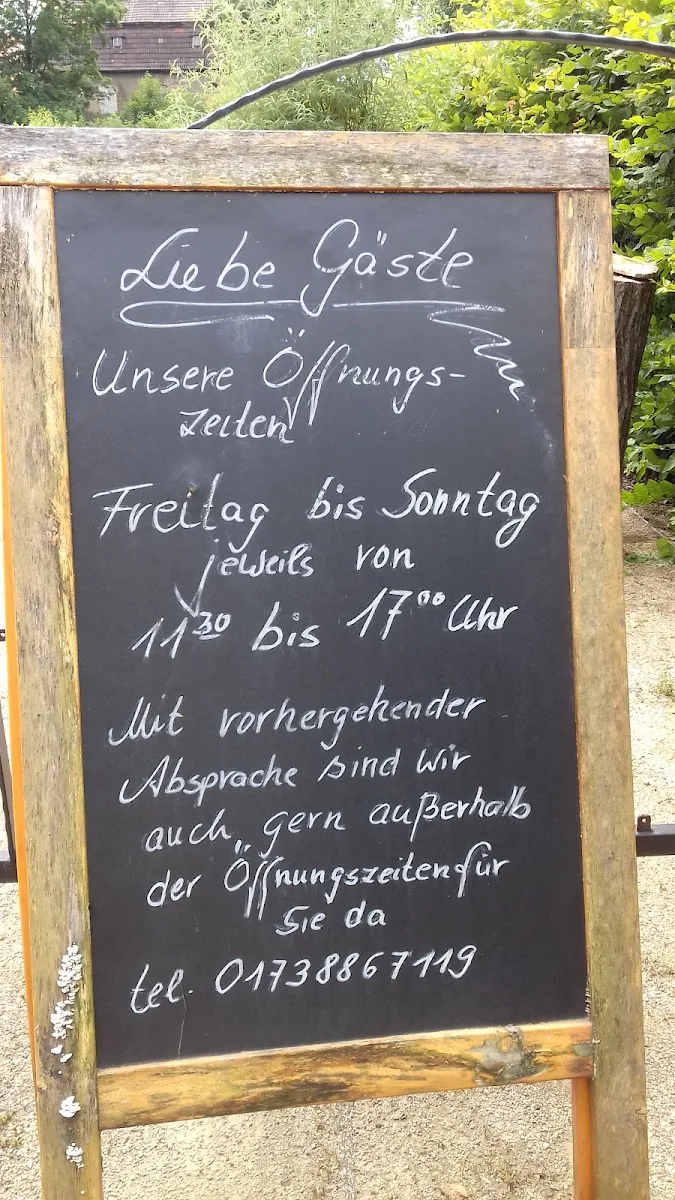 Liebe Gäste
Unsere Öffnungs-
zeiten
Freitag bis Sonntag
jeweils von
11³⁰ bis 17⁰⁰ Uhr
Mit vorhergehender
Absprache sind wir
auch gern außerhalb
der Öffnungszeiten für
Sie da
tel. 01738867119